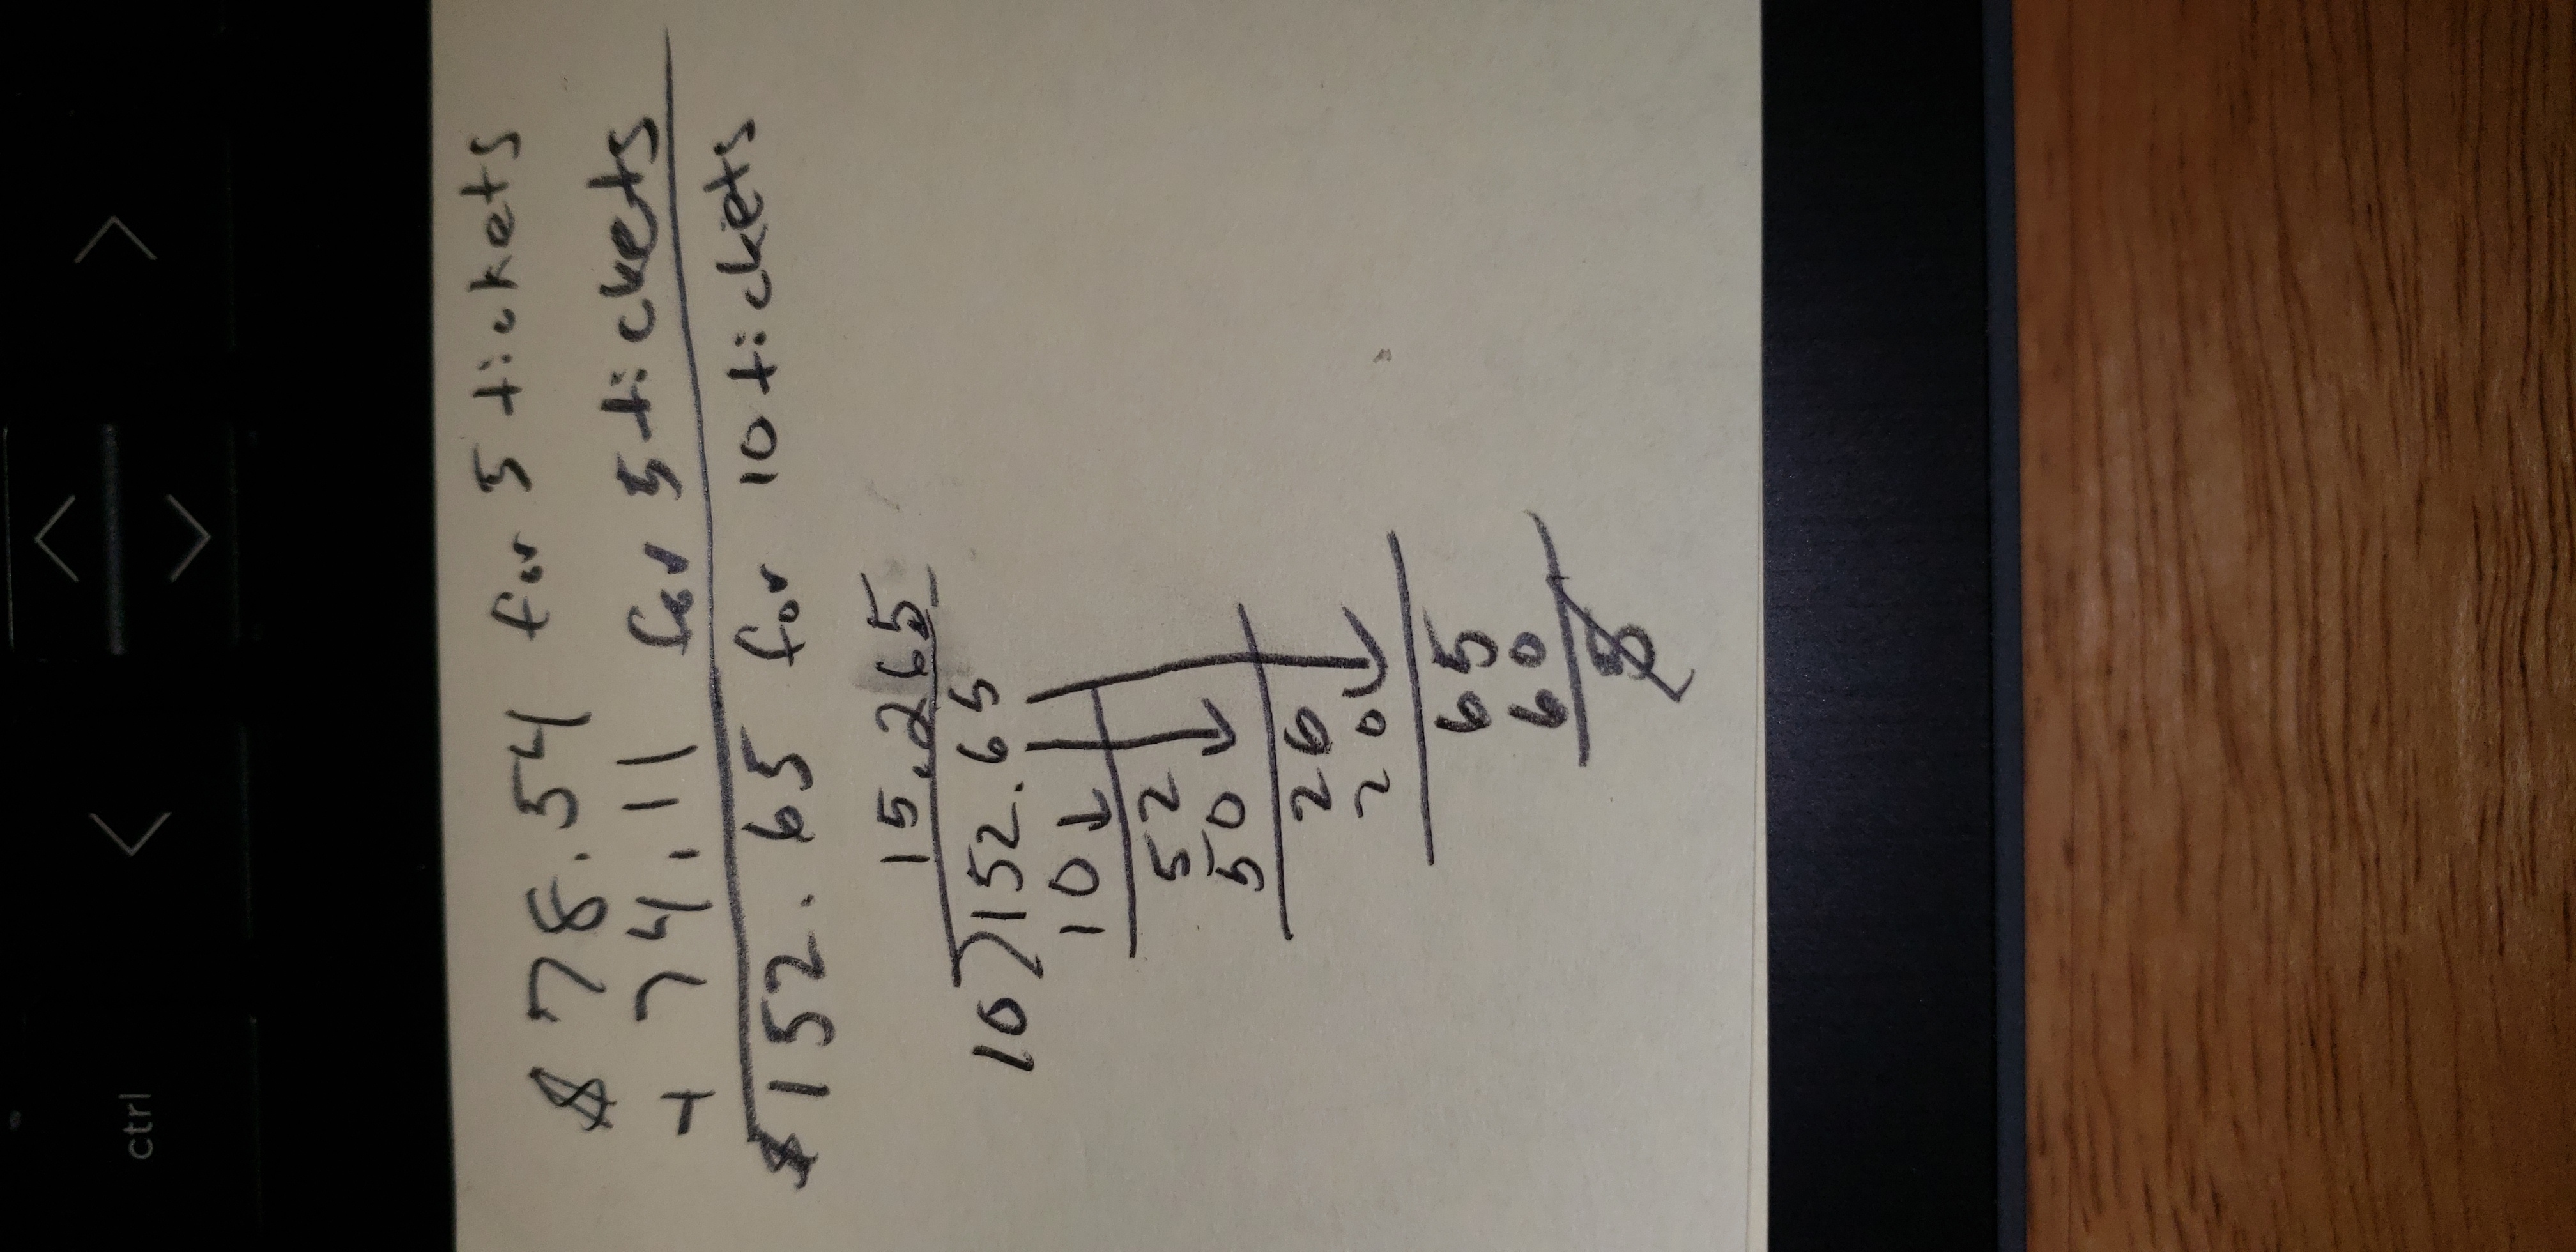 $78.54 for 5 tickets
+ 74.11 for 5 tickets
$152.65 for 10 tickets
15.265
10)152.65
10
52
50
26
20
65
60
5
ctrl